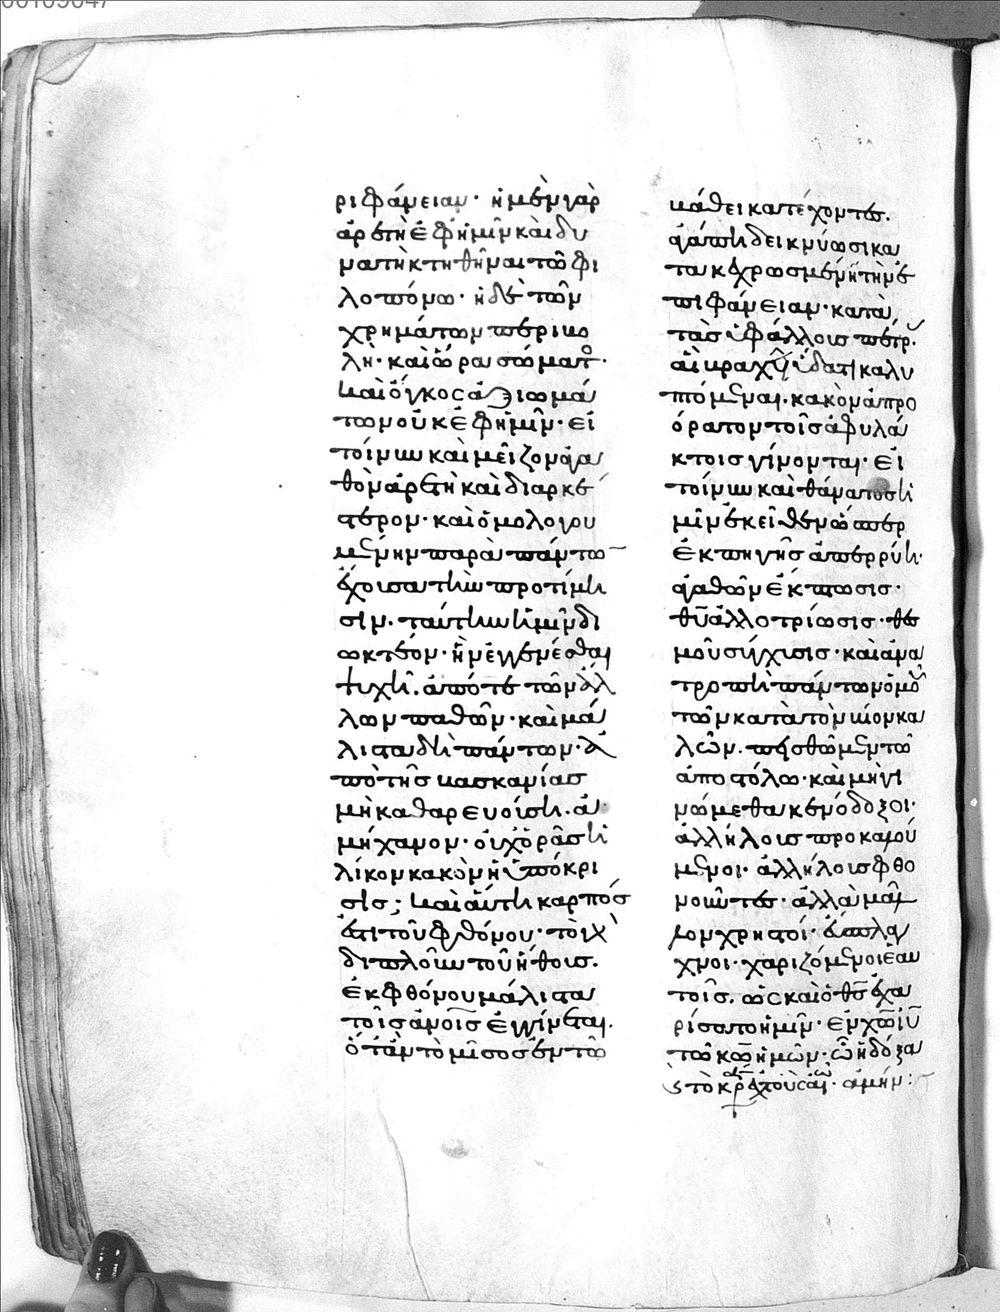 ριφάνειαν· ἡ μὲν γὰρ
ἀρετὴ ἐφ ἡμῖν καὶ δυ
νατὴ κτηθῆναι τῶ φι
λοπόνω· ἡ δὲ τῶν
χρημάτων περιβο
λὴ· καὶ ὥρα σώματ̊·
καὶ ὄγκος ἀξιωμά
των οὐκ ἐφ ἡμῖν· εἰ
τοίνυν καὶ μεῖζον ἀγα
θὸν ἀρετὴ καὶ διαρκέ
στερον· καὶ ὁμολογου
μένην παρὰ πάντω
ἔχουσα τὴν προτίμη
σιν· ταύτην ἡμῖν δι
ωκτέον· ἣν ἐγγενέσθαι
ψυχῆ· ἀπό τε τῶν ἄλ
λων παθῶν· καὶ μά
λιστα δὴ πάντων· ἀ
πὸ τῆς βασκανίας
μὴ καθαρευούση· ἀ
μήχανον· οὐχ ὁρᾶς ἡ
λίκον κακὸν ἡ ὑπόκρι
σις; καὶ αὕτη καρπός
ἐστι τοῦ φθόνου· τὸ γὰρ
διπλοῦν τοῦ ἤθους·
ἐκ φθόνου μάλιστα
τοῖς ἀνοις ἐγγίνεται·
ὅταν τὸ μῖσος ἐν τῶ
βάθει κατέχοντες·
ἀγάπη δεικνύωσι κα
τακεχρωσμένη τὴν ἐ
πιφάνειαν· κατὰ
τὰς ὑφάλλους πέτρ·
αἳ βραχεῖ ὕδατι καλυ
πτόμεναι· κακὸν ἀπρο
όρατον τοῖς ἀφυλά
κτοις γίνονται· εἰ
τοίνυν καὶ θάνατος ἡ
μῖν ἐκεῖθεν ὥσπερ
ἐκ πηγῆς ἀπερρύη·
ἀγαθῶν ἔκπτωσις·
θυ ἀλλοτρίωσις· θε
μοῦ σύγχυσις· καὶ ἀνα
τροπὴ πάντων ὁμοῦ
τῶν κατὰ τὸν βίον κα
λῶν· πεισθῶμεν τῶ
ἀποστόλω· καὶ μὴ γι
νώμεθα κενόδοξοι·
ἀλλήλους προκαλού
μενοι· ἀλλήλοις φθο
νοῦντες· ἀλλὰ μᾶλ
λον χρηστοί· εὔσπλα
χνοι· χαριζόμενοι ἑαυ
τοῖς· ὡς καὶ ὁ θς ἐχα
ρίσατο ἡμῖν· ἐν χω ιυ
τῶ κω ἡμῶν· ὧ ἡ δόξα
ς τὸ κρά εἰς τοὺς αἰ· ἀμήν: